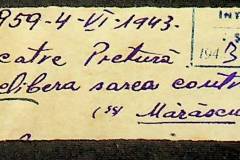 959-4-VI-1943.
catre Pretură
elibera sarea contr
(ss Mărăscu
INT
194